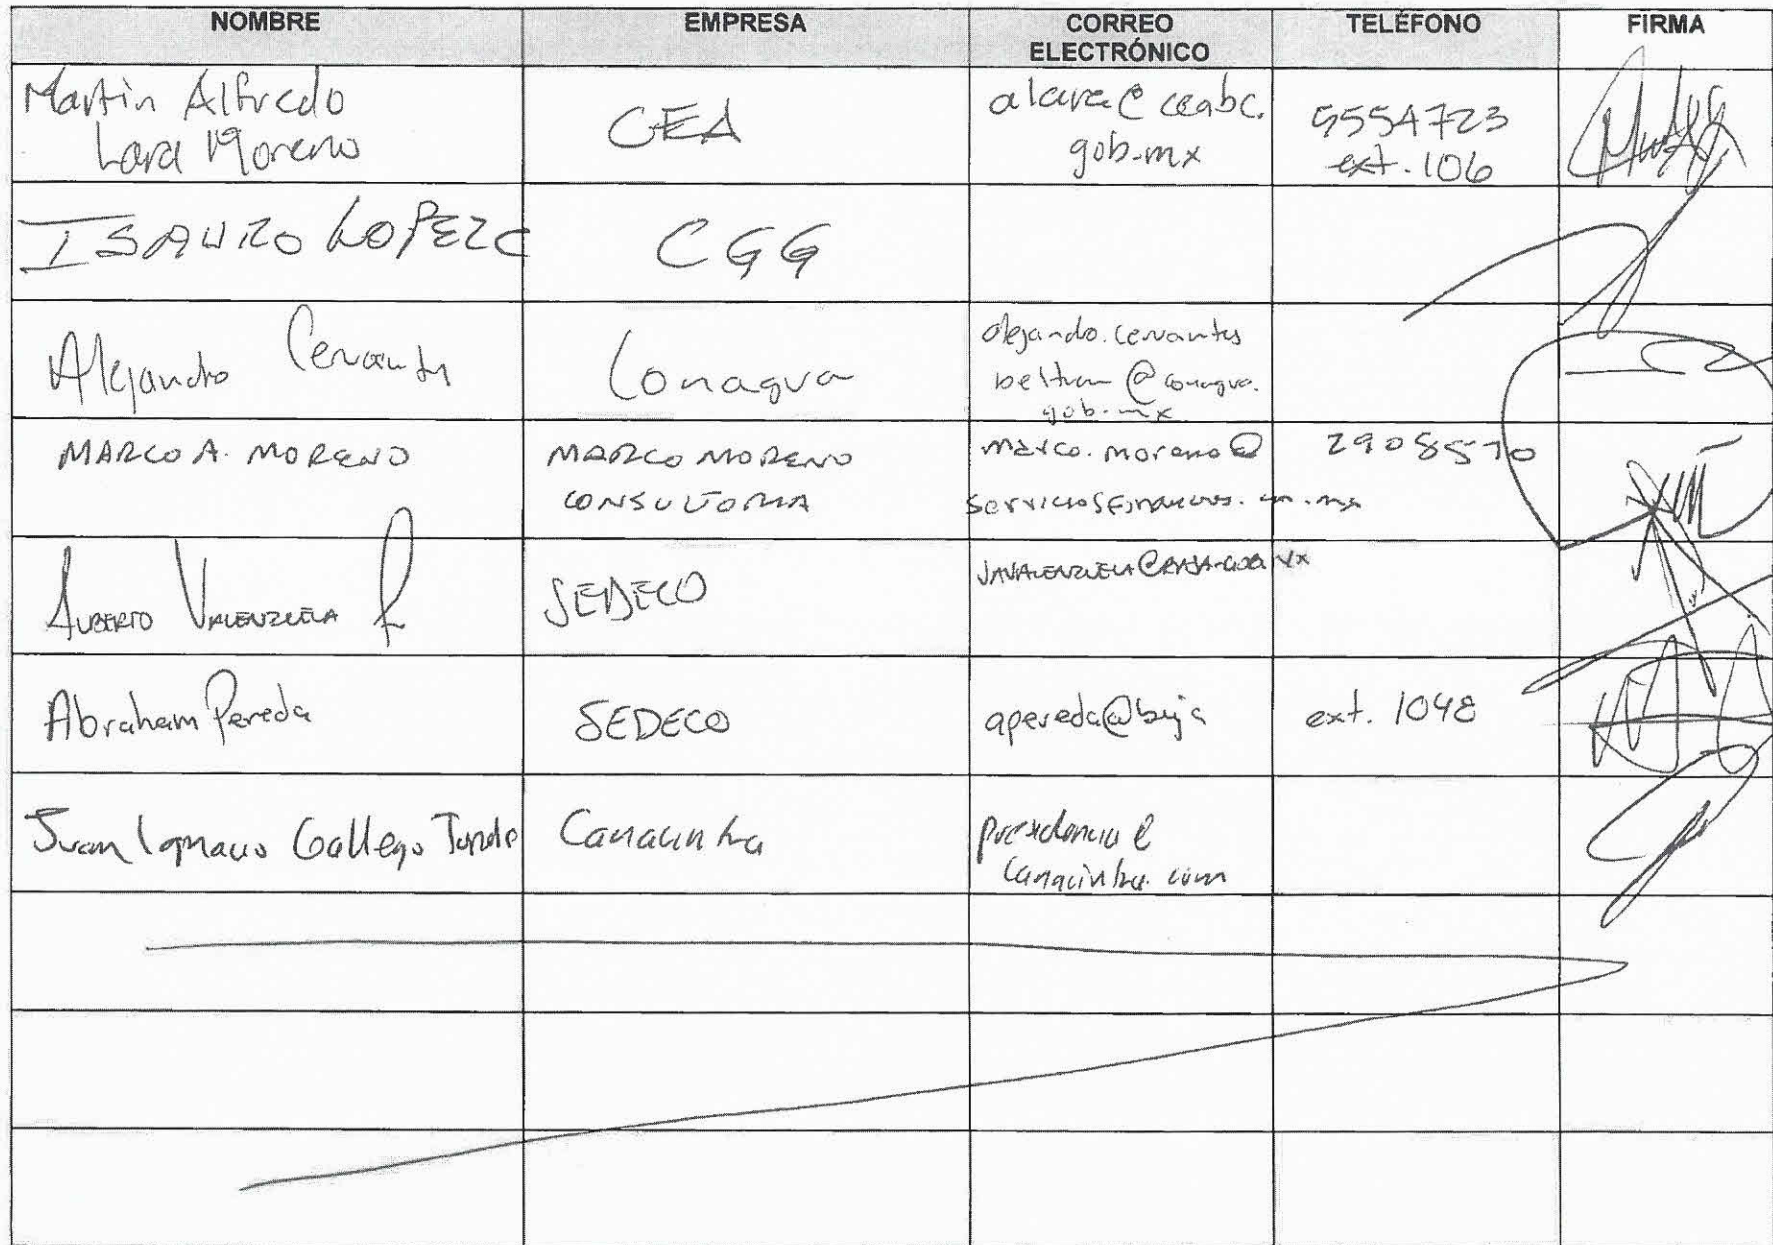 NOMBRE EMPRESA CORREO ELECTRÓNICO TELÉFONO FIRMA
Martin Alfredo
Lara Moreno
CEA
alara@ceabc.
gob.mx
5554723
ext. 106
ISAURO LOPEZ C
CGG
Alejandro Cervantes
Conagua
alejandro.cervantes
beltran@conagua.
gob.mx
MARCO A. MORENO
MARCO MORENO
CONSULTORIA
marco.moreno@
2908570
ALBERTO VALENZUELA R
SEDECO
Abraham Pereda
SEDECO
apereda@baja
ext. 1048
Juan Ignacio Gallego
Canacintra
presidencia@
canacintra.com